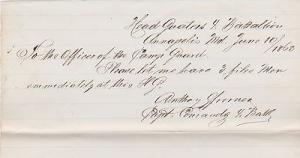 Head Quarters 1 Battalion
Annapolis Md. June 10/1862
To the Officer of the Camp Guard
Please let me have 3 files Men
immediately at this H Q.
Anthony
Capt. Comandg 1 Batt.